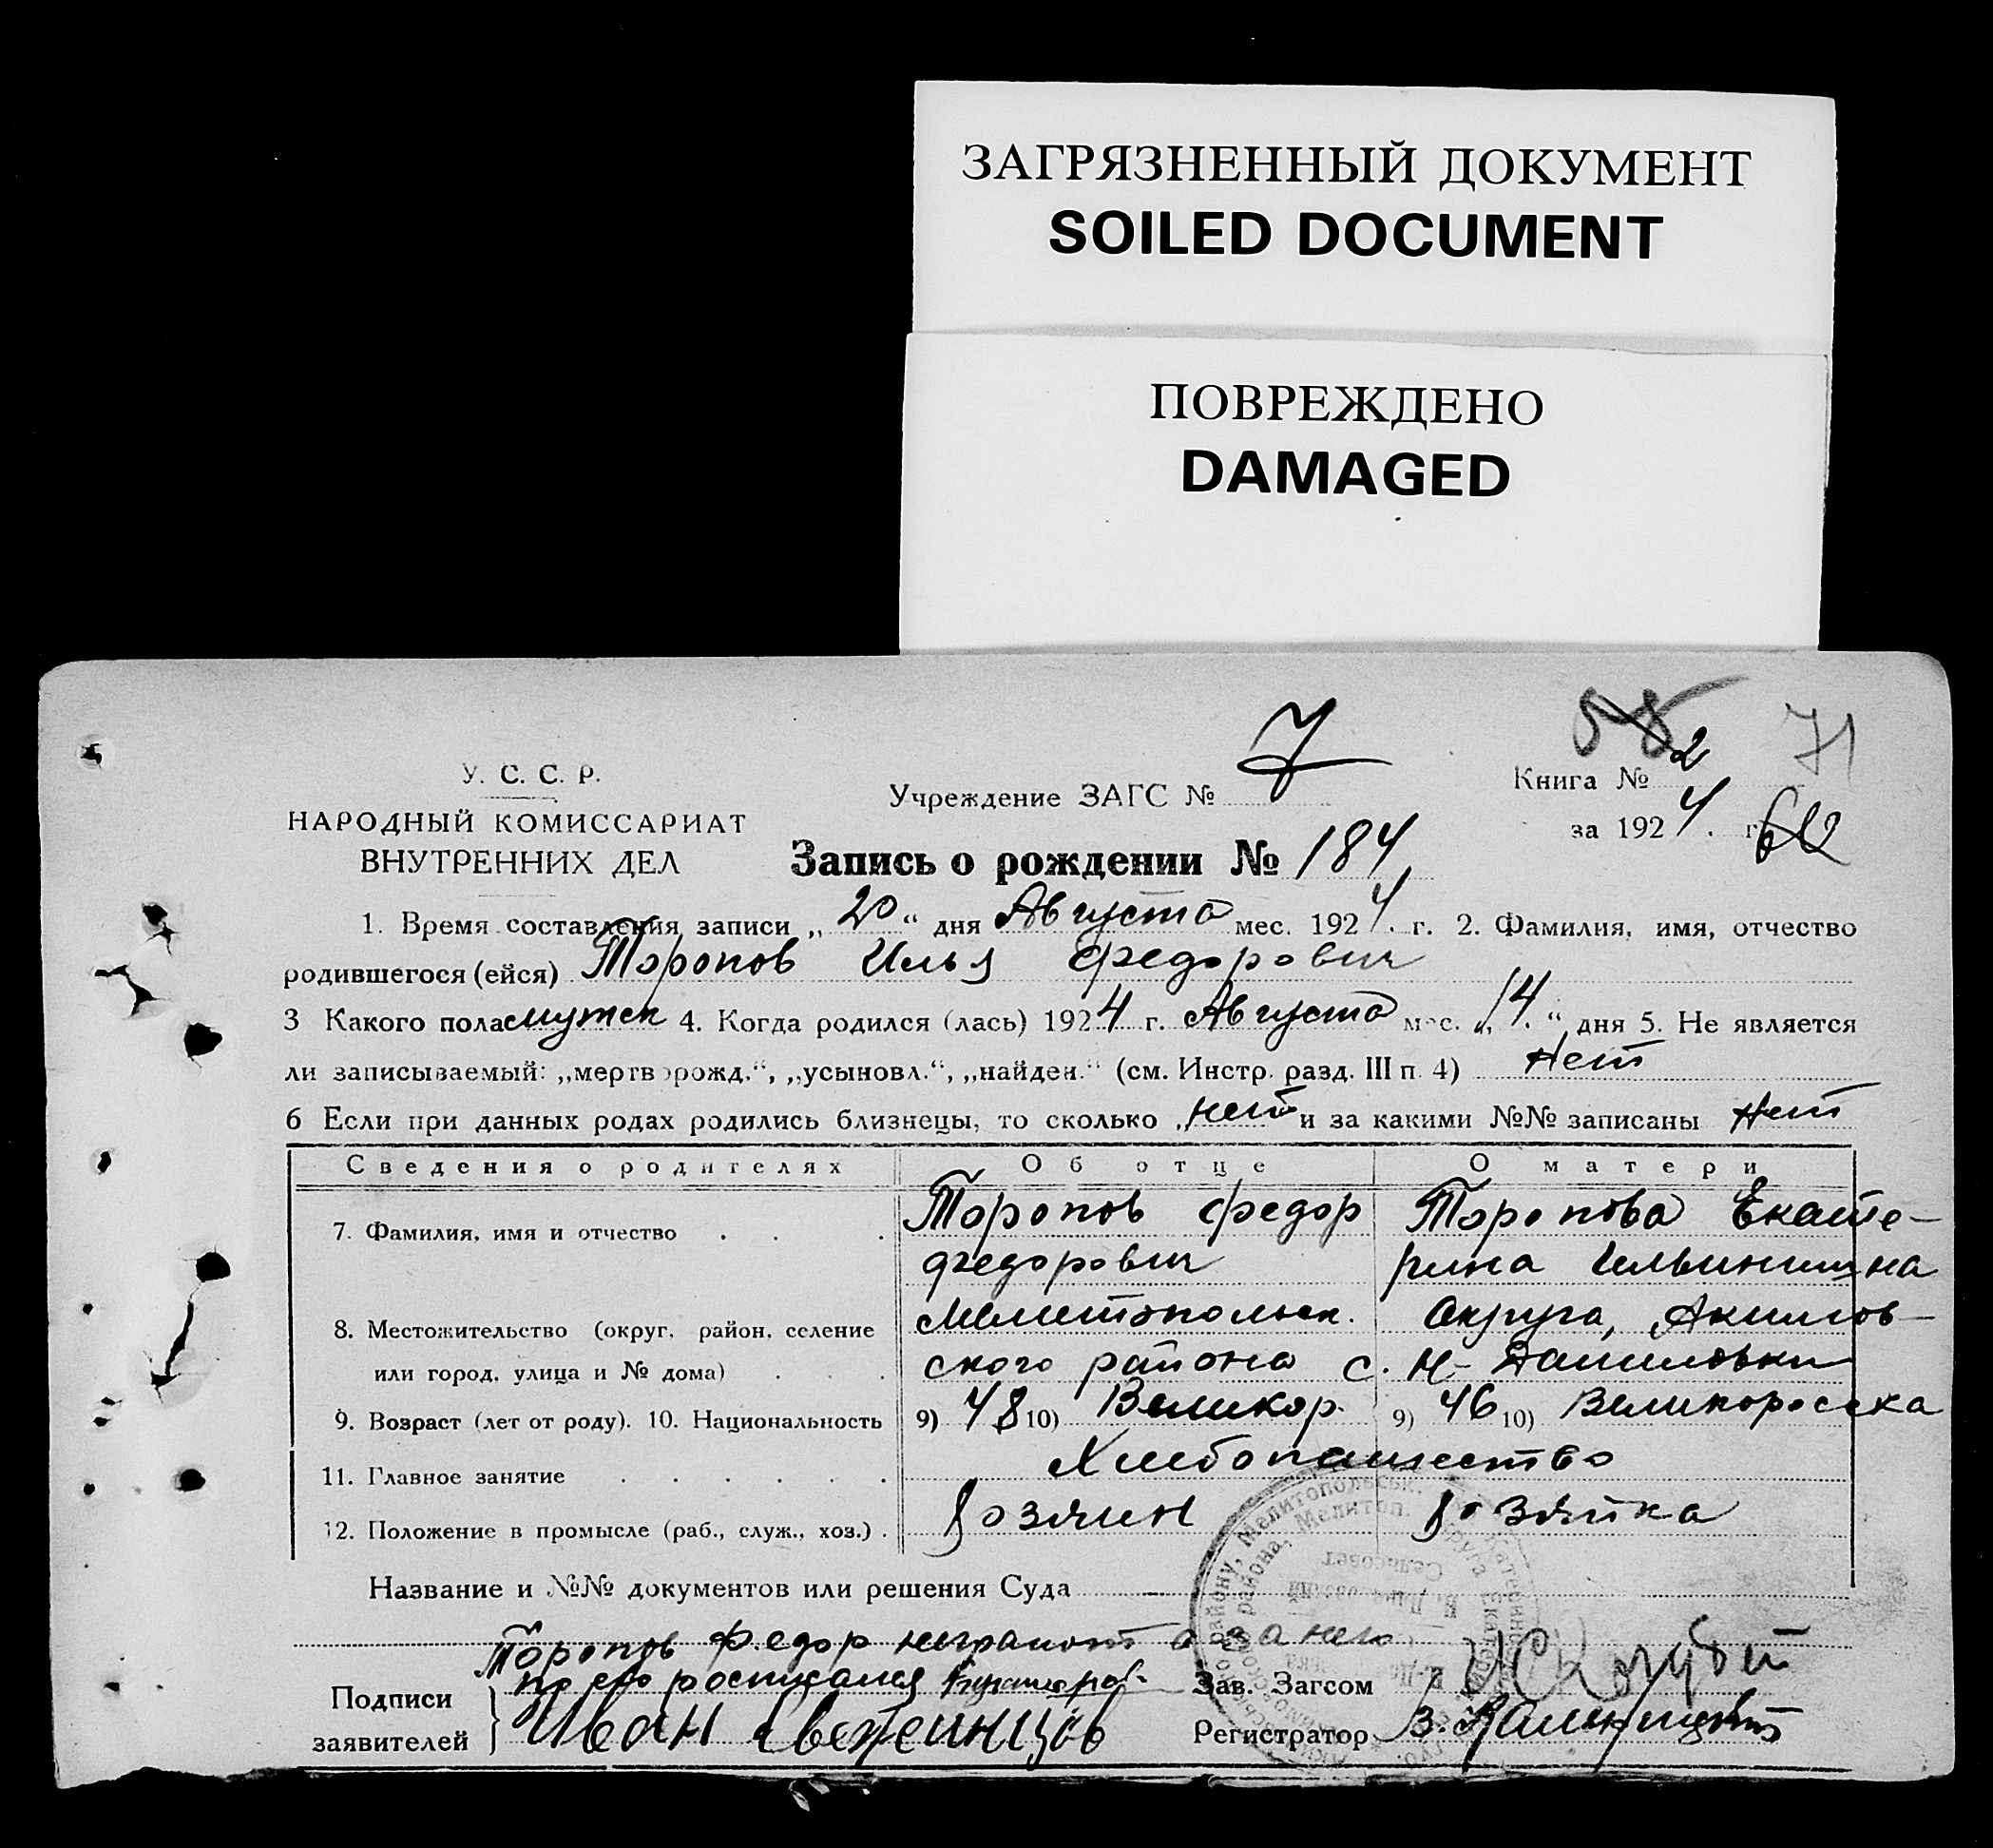 ЗАГРЯЗНЕННЫЙ ДОКУМЕНТ
SOILED DOCUMENT
ПОВРЕЖДЕНО
DAMAGED
58 71
У. С. С. Р.
Учреждение ЗАГС № 7
Книга № 2
НАРОДНЫЙ КОМИССАРИАТ
за 1924. г.
ВНУТРЕННИХ ДЕЛ
Запись о рождении № 184
1. Время составления записи „20“ дня Августа мес. 1924. г. 2. Фамилия, имя, отчество
родившегося (ейся) Торопов Илья Федорович
3 Какого пола мужск 4. Когда родился (лась) 1924 г. Августа мес. „14.“ дня 5. Не является
ли записываемый: „мертворожд.“, „усыновл.“, „найден.“ (см. Инстр. разд. III п. 4) Нет
6 Если при данных родах родились близнецы, то сколько нет и за какими №№ записаны Нет
Сведения о родителях Об отце О матери
7. Фамилия, имя и отчество Торопов Федор Торопова Екате-
Федорович рина Ильинишна
8. Местожительство (округ, район, селение Мелитопольск. Округа, Акимов-
или город, улица и № дома) ского района с. Н-Даниловки
9. Возраст (лет от роду). 10. Национальность 9) 48 10) Великор. 9) 46 10) Великоросска
11. Главное занятие Хлебопашество
12. Положение в промысле (раб., служ., хоз.) . Хозяин Хозяйка
Название и №№ документов или решения Суда —
Торопов Федор неграмот а за него
по его росписался
Подписи
заявителей
Иван
Зав. Загсом
Регистратор